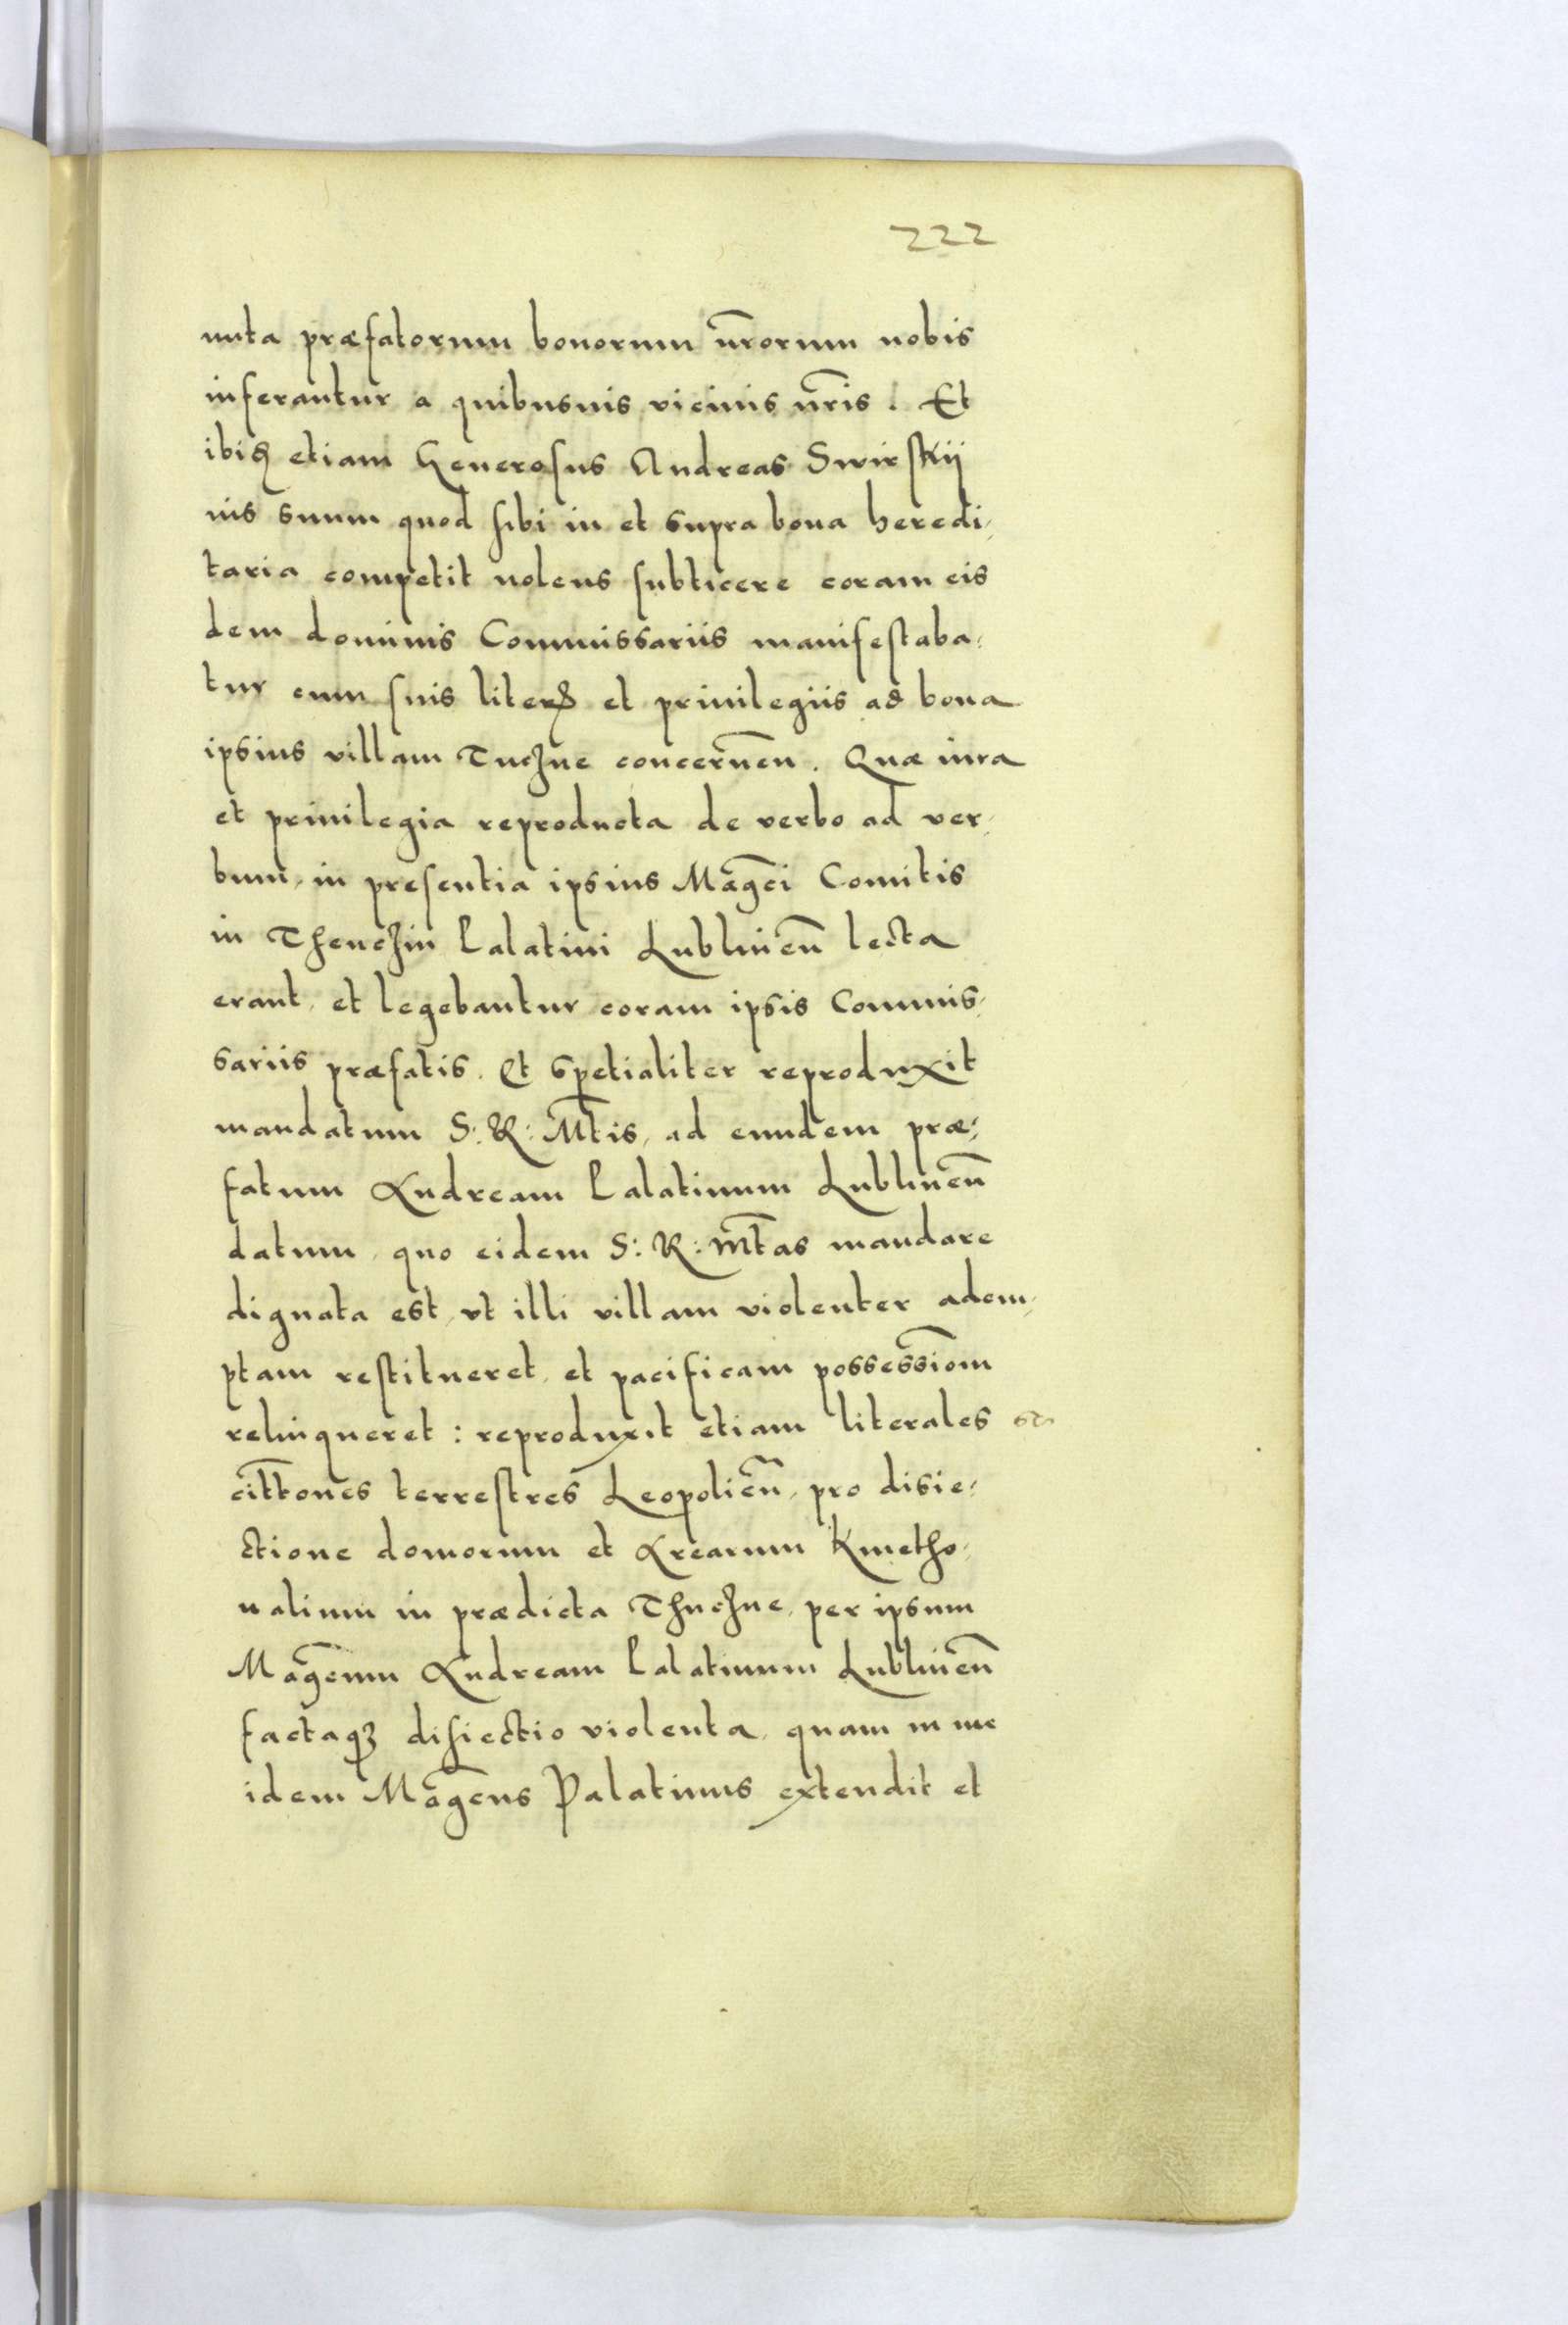 222
nuta præfatorum bonorum nr̃orum nobis
inferantur a quibusuis vicinis nr̃is. Et
ibidẽ etiam Generosus Andreas Swirskij
ius suum quod sibi in et supra bona heredi-
taria competit nolens subticere coram eis
dem dominis Commissariis manifestaba-
tur cum suis literis et priuilegiis ad bona
ipsius villam Tuczne concerneñ. Quæ iura
et priuilegia reproducta de verbo ad ver-
bum, in presentia ipsius Mãgci Comitis
in Thenczin Palatini Lublineñ lecta
erant, et legebantur coram ipsis Commis-
sariis præfatis. Et spetialiter reproduxit
mandatum S: R: Mt̃is, ad eundem præ-
fatum Andream Palatinum Lublineñ
datum, quo eidem S: R: Mt̃as mandare
dignata est, vt illi villam violenter adem-
ptam restitueret, et pacificam possessiom̃
relinqueret: reproduxit etiam literales
citt̃ones terrestres Leopolieñ, pro disie-
ctione domorum et Arearum Kmetho-
nalium in prædicta Thuczne, per ipsum
Mãgcum Andream Palatinum Lublineñ
factaqꝫ disiectio violenta, quam in me
idem Mãgcus Palatinus extendit et